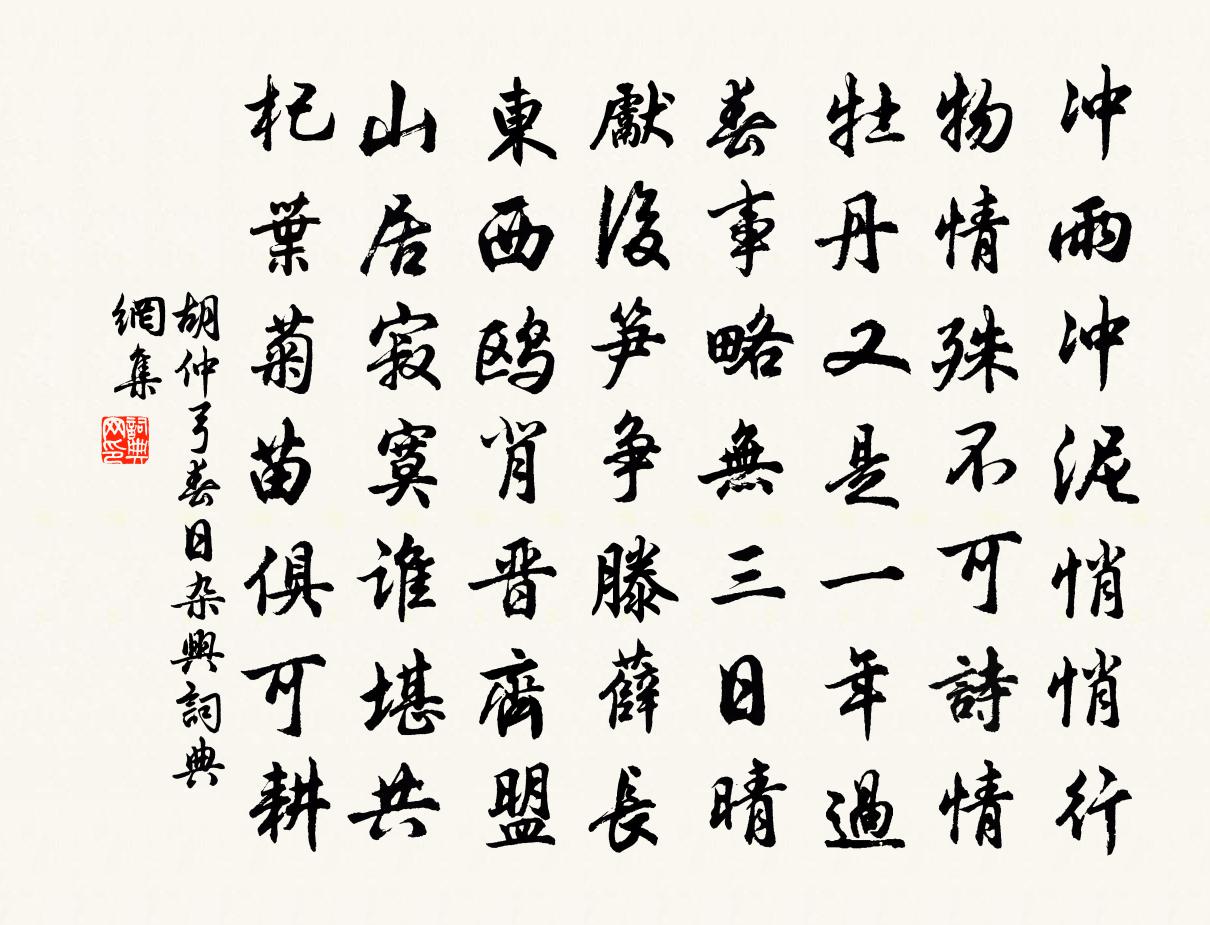 冲雨冲泥悄悄行
物情殊不可詩情
牡丹又是一年過
春事略無三日晴
獻後笋争滕薛長
東西鸥肖晋齊盟
山居寂寞谁堪共
杞葉菊苗俱可耕
胡仲弓春日杂興詞典
網集
詞典
网印